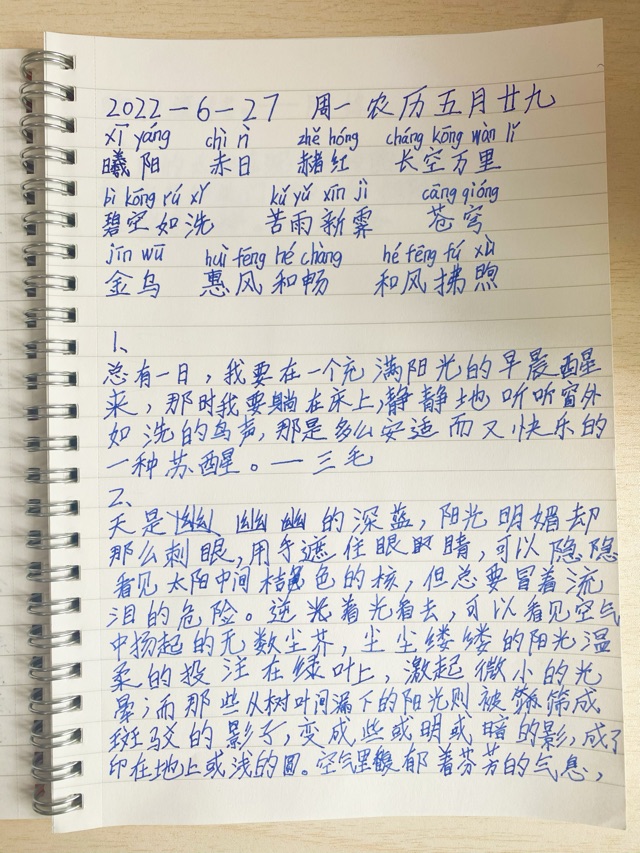 2022-6-27 周一 农历五月廿九
xī yáng chì rì zhě hóng cháng kōng wàn lǐ
曦阳 赤日 赭红 长空万里
bì kōng rú xǐ kǔ yǔ xīn jì cāng qióng
碧空如洗 苦雨新霁 苍穹
jīn wū huì fēng hé chàng hé fēng fú xù
金乌 惠风和畅 和风拂煦
1、
总有一日，我要在一个充满阳光的早晨醒
来，那时我要躺在床上，静静地听听窗外
如洗的鸟声，那是多么安适而又快乐的
一种苏醒。—三毛
2、
天是幽幽的深蓝，阳光明媚却
那么刺眼，用手遮住眼睛，可以隐隐
看见太阳中间桔色的核，但总要冒着流
泪的危险。逆着光看去，可以看见空气
中扬起的无数尘芥，尘尘缕缕的阳光温
柔的投注在绿叶上，激起微小的光
晕；而那些从树叶间漏下的阳光则被筛成
斑驳的影子，变成些或明或暗的影，成了
印在地上或浅的圆。空气里馥郁着芬芳的气息，